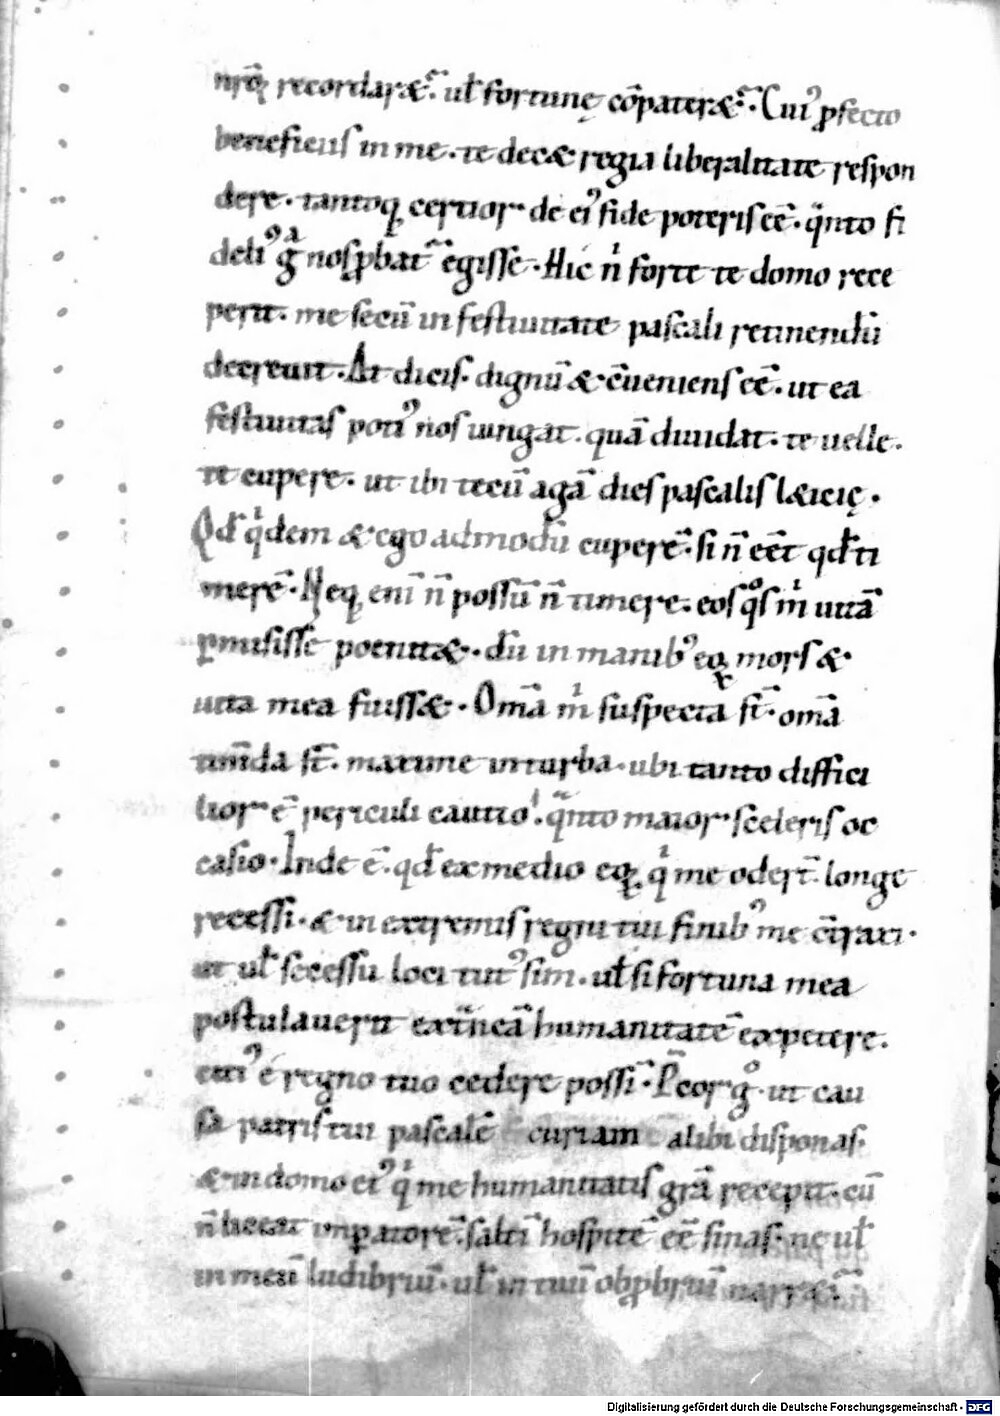 nr̄oꝝ recordaret᷑. ul̄ fortunę cōpateret᷑. Cuiꝰ ꝓfecto
beneficiis in me. te decet regia liberalitate respon
dere. tantoq; certior de eiꝰ fide poteris eē. qͣnto fi
deliꝰ gͣ nos ꝓbat᷑ egisse. Hic nͥ forte te domo rece
perit. me secū in festiuitate pascali retinendū
decreuit. At dicis. dignū & c̄ueniens eē. ut ea
festiuitas potiꝰ nos iungat. quā diuidat. te uelle.
te cupere. ut ibi tecū agā dies pascalis lęticię.
Qd̄ qͥdem & ego admodū cuperē. si n̄ eēt qd̄ ti
merē. Neq; eni n̄ possū n̄ timere. eos qͦs mͥ uitā
ꝑmisisse poenitet. dū in manibꝰ eoꝝ mors &
uita mea fuisset. Om̄a mͥ suspecta st̄. om̄a
tim̄da st̄. maxime in turba. ubi tanto diffici
lior ē periculi cautio. qͣnto maior sceleris oc
casio. Inde ē. qd̄ ex medio eoꝝ qͥ me oder̄t. longe
recessi. & in extremis regni tui finibꝰ me c̄traxi.
ut ul̄ secessu loci tutꝰ sim. ul̄ si fortuna mea
postulauerit ext̄neā humanitatē expetere.
citiꝰ é regno tuo cedere possī. P̄cor gͦ. ut cau
sa patris tui pascalē curiam alibi disponas.
& in domo eiꝰ qͥ me humanitatis grā recepit. cū
n̄ liceat imꝑatorē. saltī hospitē eē sinas. ne ul̄
in meū ludibriū. ul̄ in tuū obꝓbriū narret᷑.
Digitalisierung gefördert durch die Deutsche Forschungsgemeinschaft - DFG